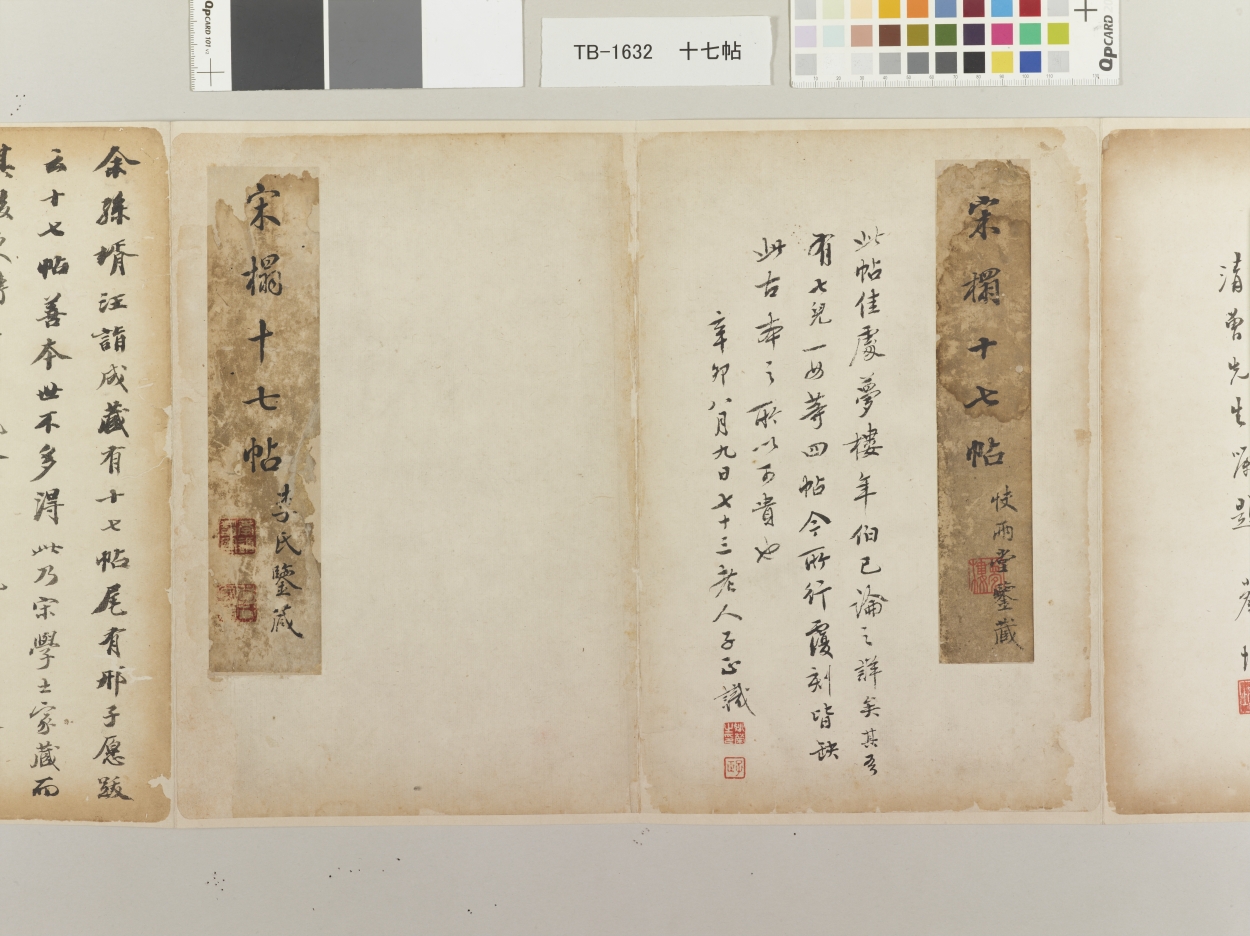 QpCARD 101 v3
TB-1632 十七帖
QpCARD
清曾先生屬題
宋榻十七帖
快雨堂鑒藏
此帖佳處夢樓年伯已論之詳矣其吾
有七兒一女等四帖今所行覆刻皆缺
此古本之所以可貴也
辛卯八月九日七十三老人子正識
宋榻十七帖
李氏鑒藏
余孫壻汪詣成藏有十七帖尾有邢子愿跋
云十七帖善本世不多得此乃宋學士家藏而